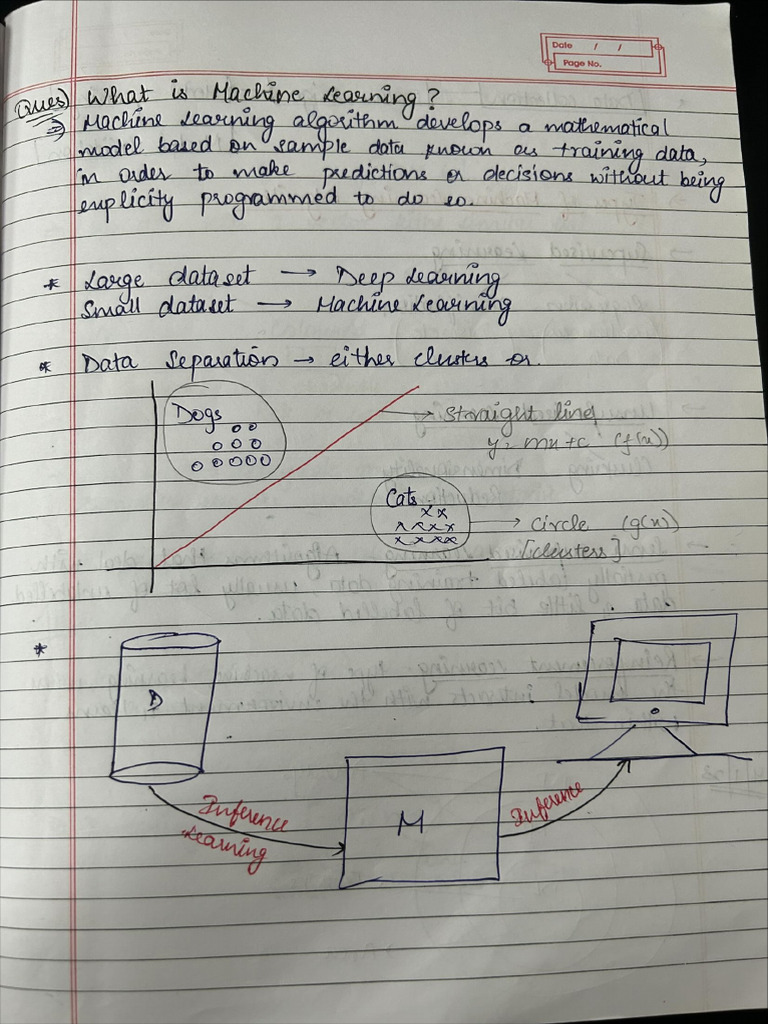 Date / /
Page No.
Ques) What is Machine Learning?
⇒ Machine Learning algorithm develops a mathematical
model based on sample data known as training data,
in order to make predictions or decisions without being
explicity programmed to do so.
* Large dataset → Deep Learning
Small dataset → Machine Learning
* Data Separation → either clusters or
Dogs
→ Straight line
y = mx + c (f(x))
Cats
→ Circle (g(x))
[clusters]
*
D
Inference
Learning
M
Inference